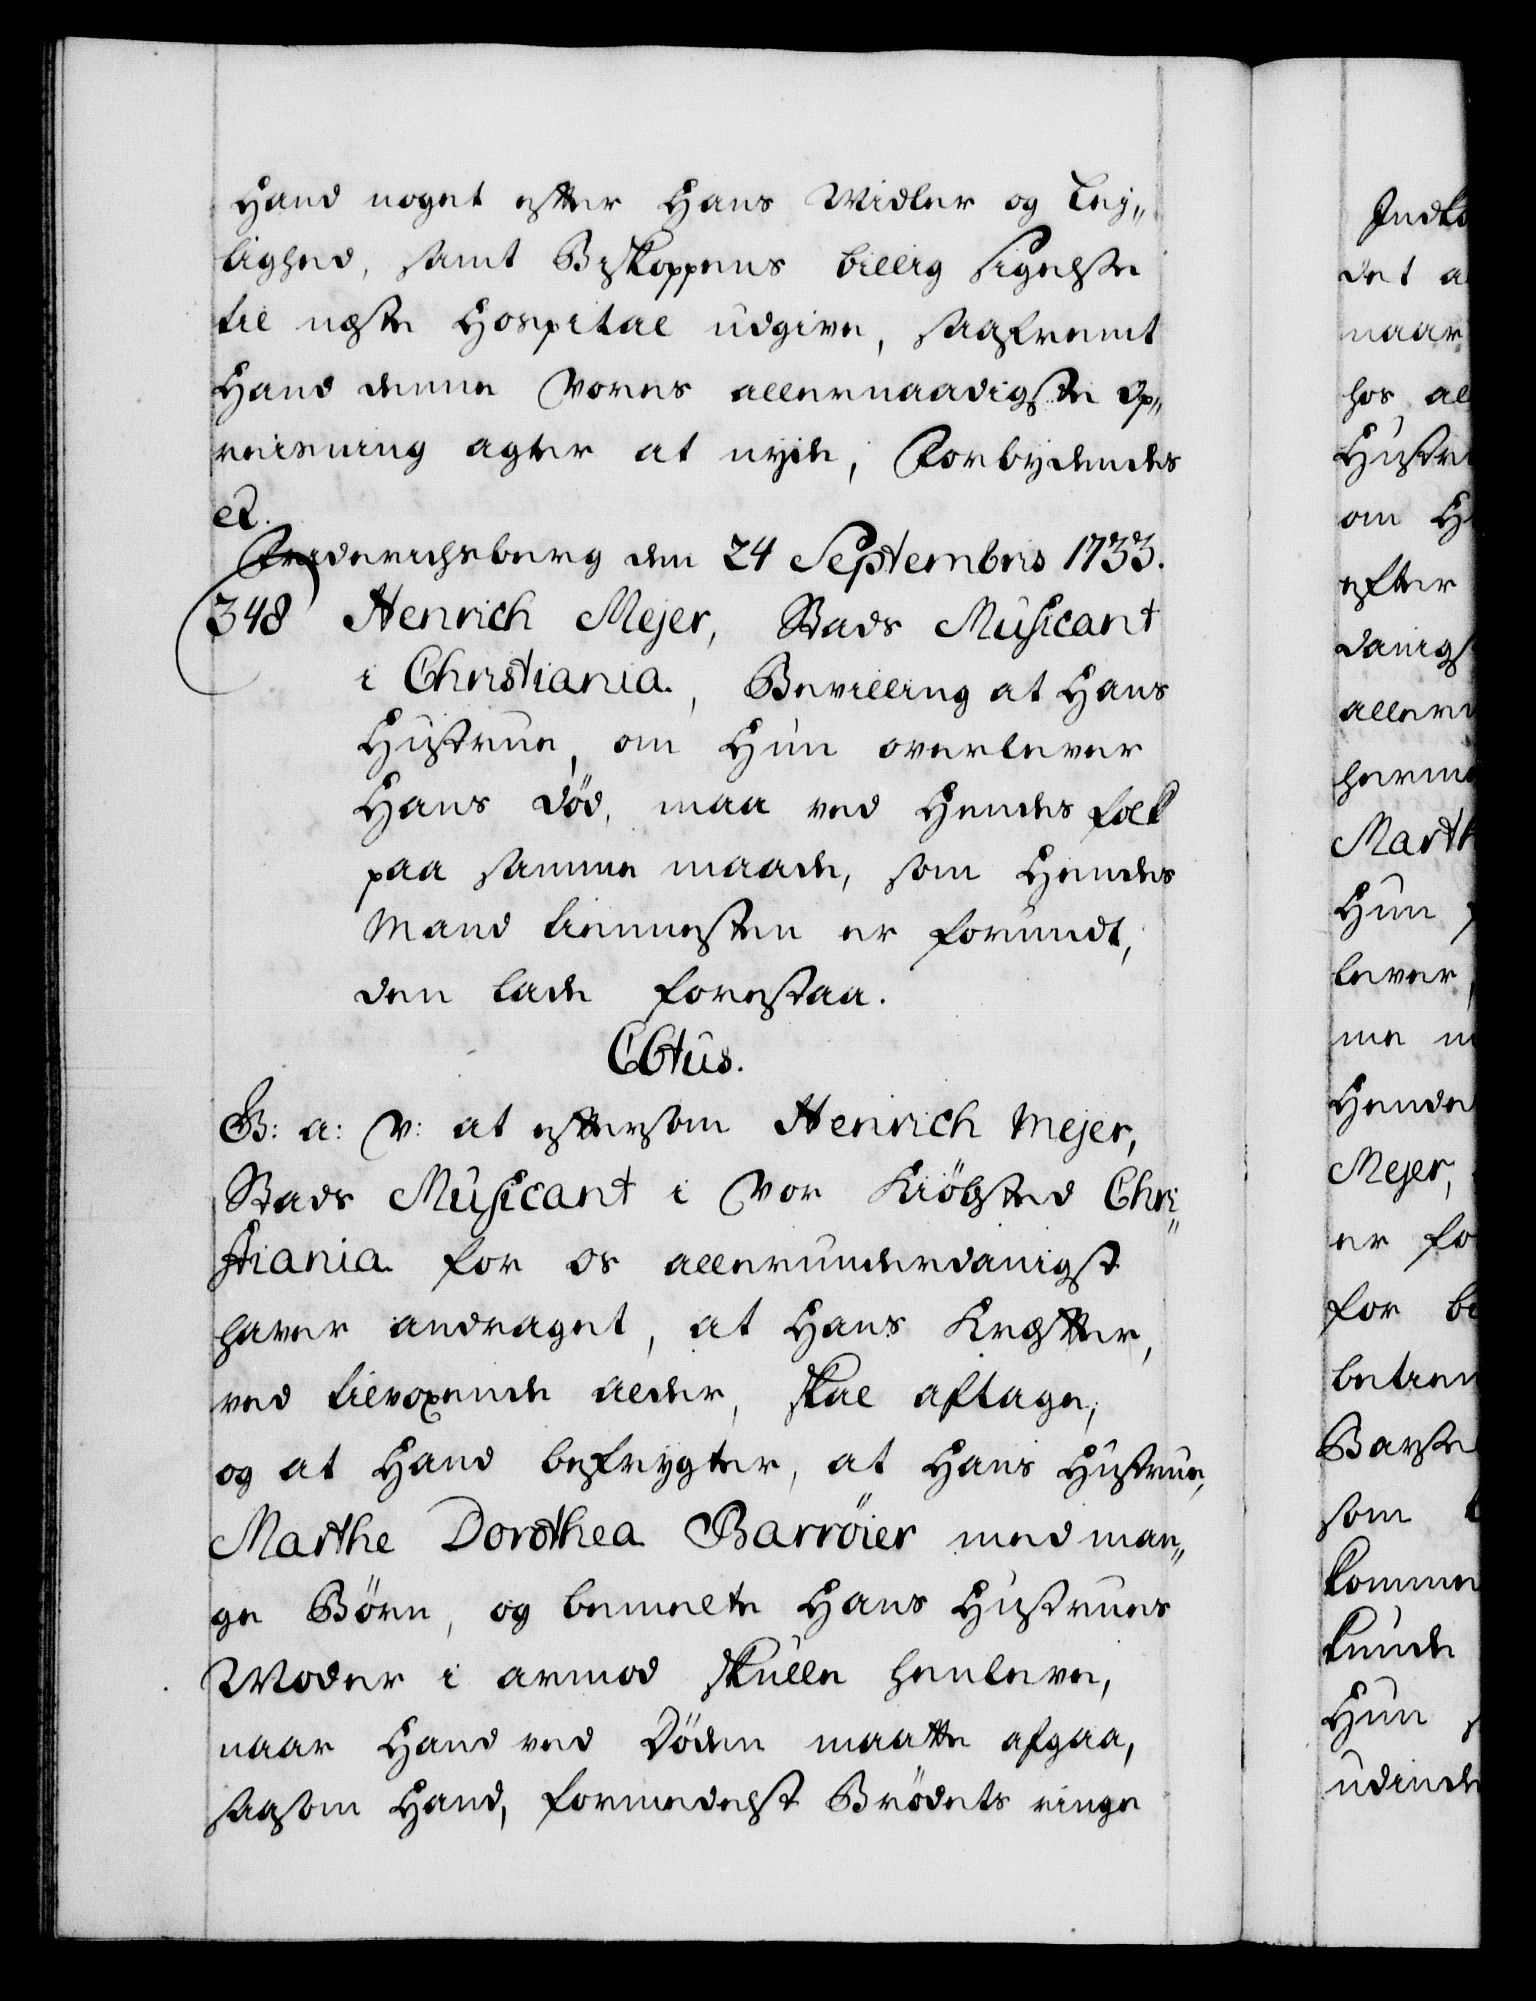 Hand noget efter Hans Midler og Lej„
lighed, samt Biskoppens billig Sigelse
til neste Hospital udgive, saafremt
Hand denne Vores allernaadigste Op„
reisning agter at nyde, Forbydendes
etc.
Friderichsberg den 24 Septembris 1733.
348 Henrich Mejer, Stads Musicant
i Christiania, Bevilling at Hans
Hustrue, om Hun overlever
Hans Död, maa ved Hendes folk
paa samme maade, som Hendes
Mand tiennesten er forundt,
den lade forestaa.
C6tus.
G: a: V: at eftersom Henrich Mejer,
Stads Musicant i Vor Kiöbsted Chri„
stiania for os allerunderdanigst
haver andraget, at Hans Kræfter,
ved tilvoxende alder, skal aftage,
og at Hand befrygter, at Hans Hustrue,
Marthe Dorothea Barröier med man„
ge Börn, og bemelte Hans Hustrues
Moder i armod skulle henleve,
naar Hand ved Döden maatte afgaa,
saasom Hand, formedelst Brödets ringe
Indko
det a
naar
hos al
Hustru
om H
efter
danigs
allern
herme
Marth
Hun
lever,
me m
Hende
Mejer,
er fo
for be
betien
Barse
som
komme
kunde
Hun
udinde